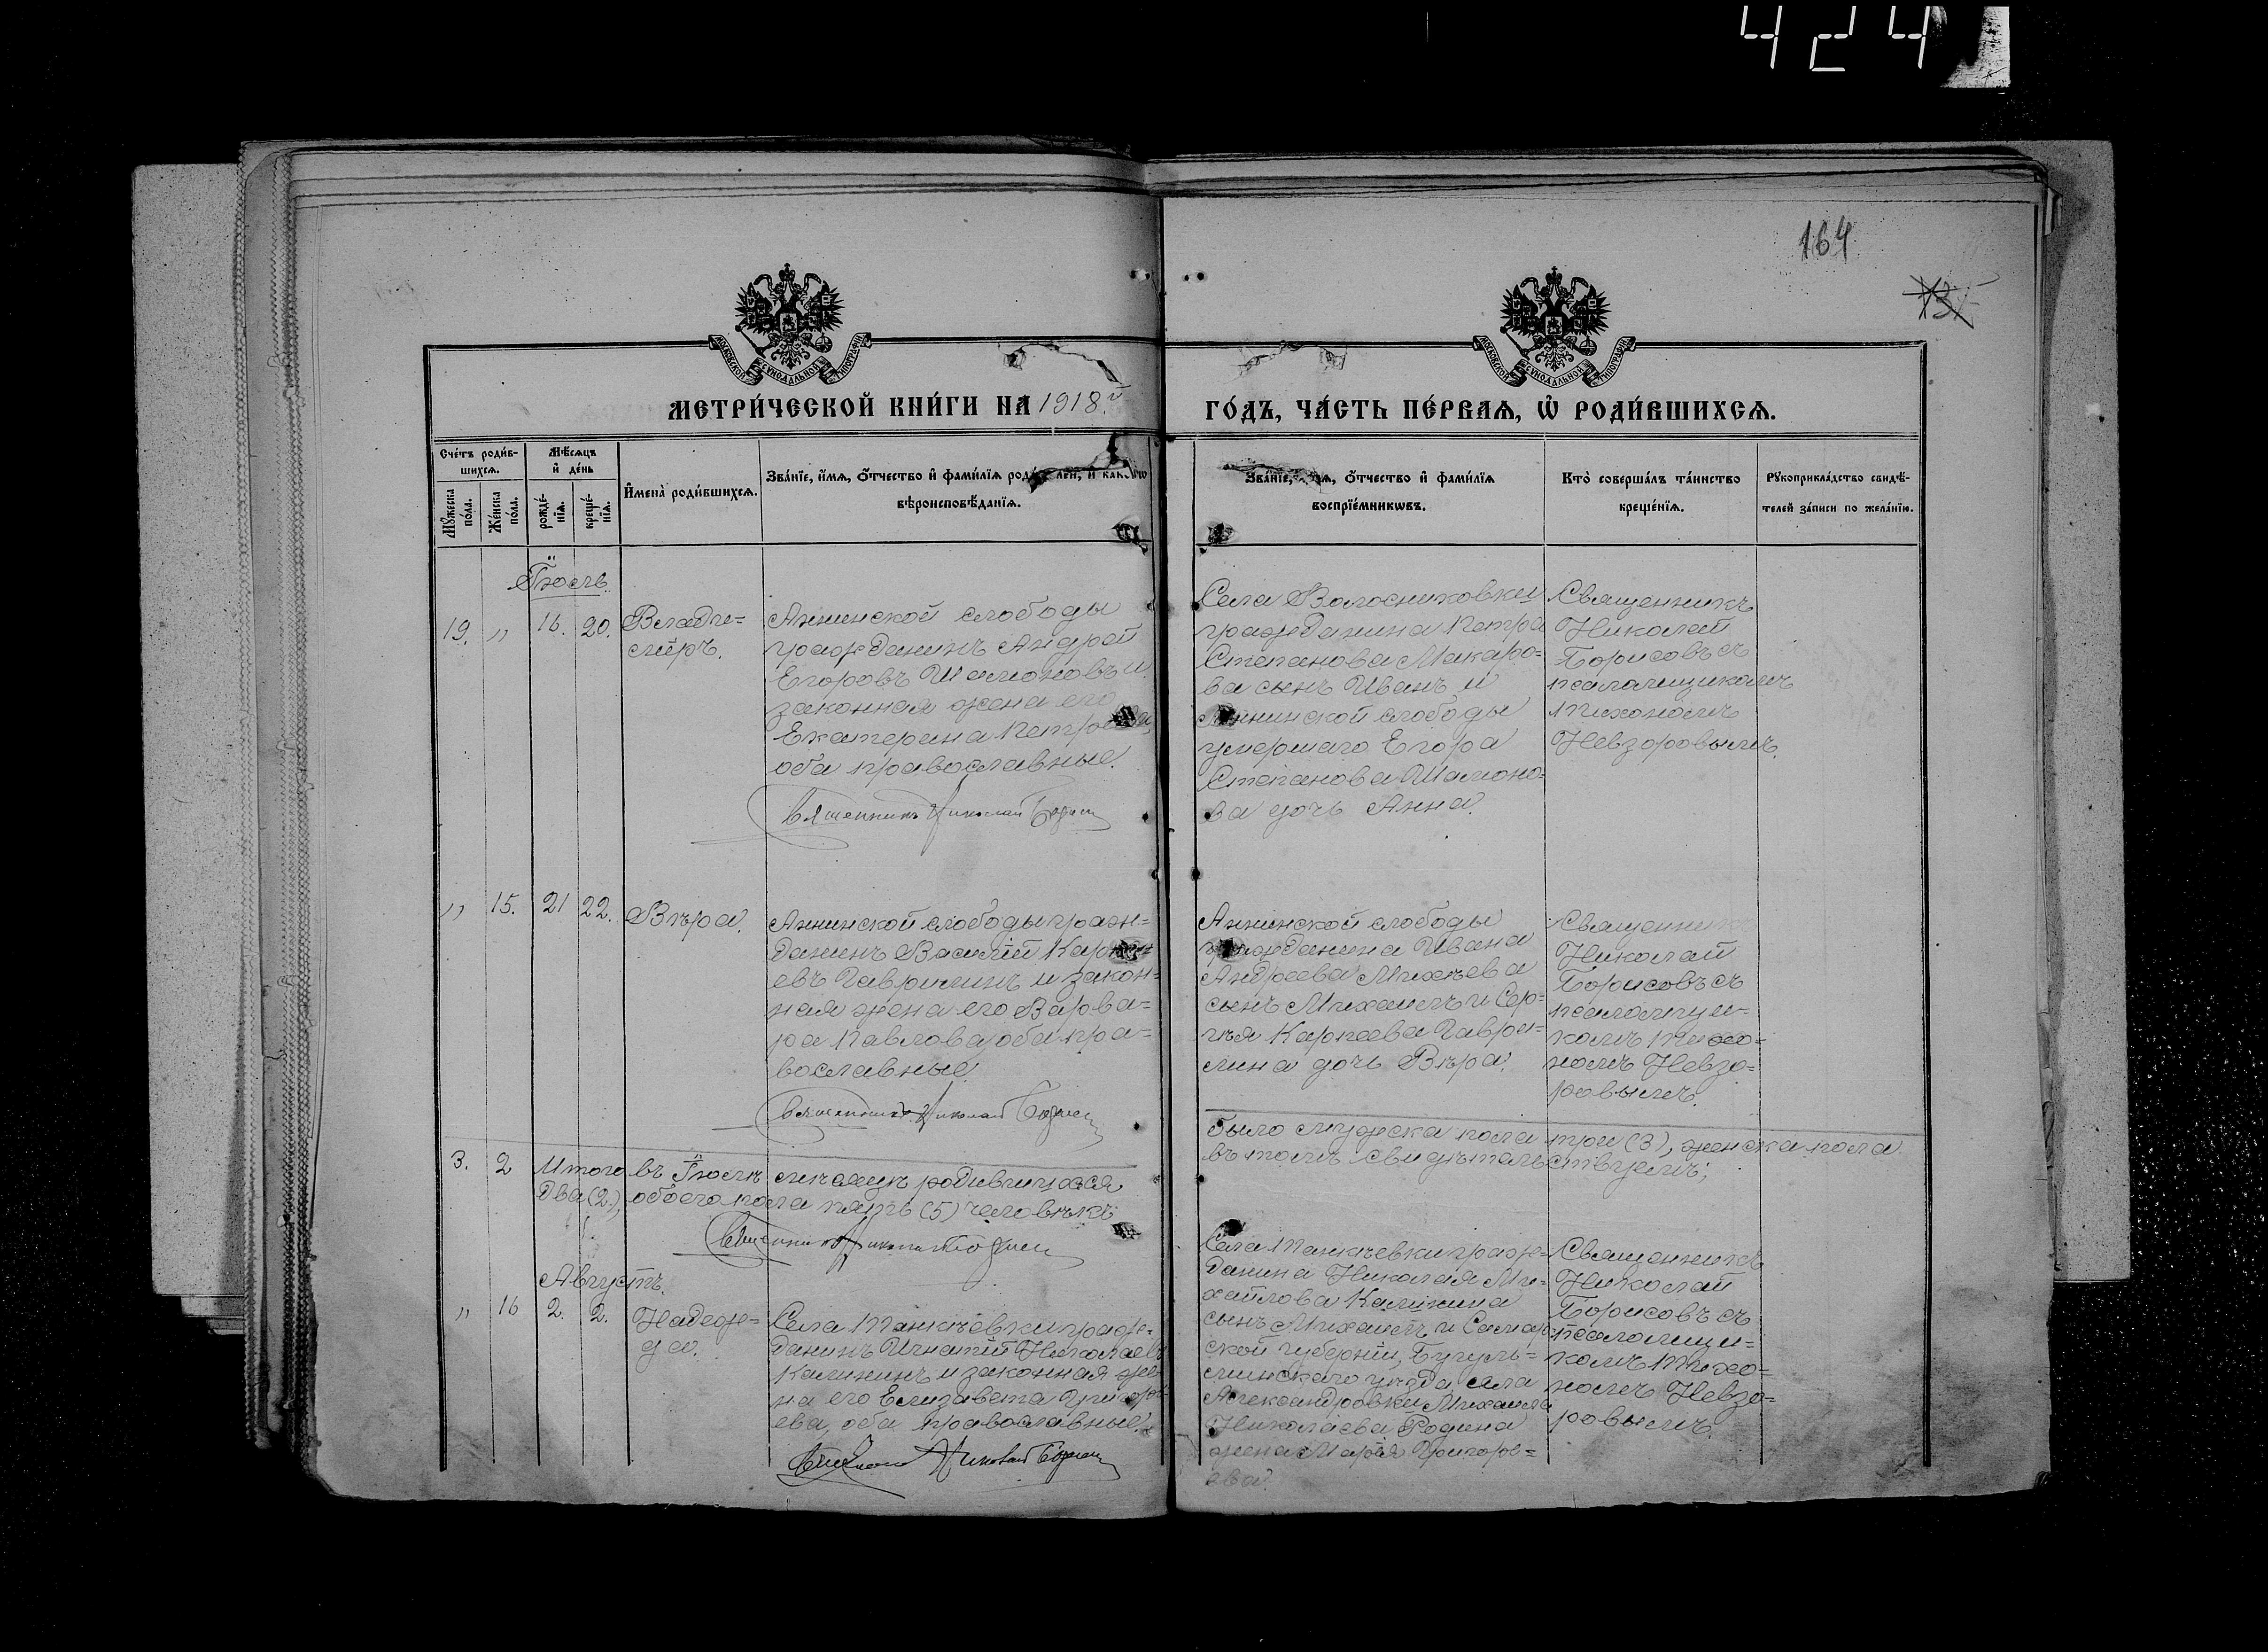 424
164
137
МОСКОВСКОЙ СѴНОДАЛЬНОЙ ТИПОГРАФІИ
МОСКОВСКОЙ СѴНОДАЛЬНОЙ ТИПОГРАФІИ
МЕТРИ́ЧЕСКОЙ КНИ́ГИ НА 1918.й
ГО́ДЪ, ЧА́СТЬ ПЕ́РВАѦ, Ѽ РОДИ́ВШИХСѦ.
Сче́тъ роди́в-
шихсѧ.
Мꙋ́жеска по́ла.
Же́нска по́ла.
Мѣ́сѧцъ
и҆ де́нь
рожде́-
нїѧ.
креще́-
нїѧ.
И҆мена̀ роди́вшихсѧ.
Зва́нїе, и҆́мѧ, ѻ҆́тчество и҆ фами́лїѧ роди́телей, и҆ како́гѡ
вѣроисповѣ́данїѧ.
Зва́нїе, и҆́мѧ, ѻ҆́тчество и҆ фами́лїѧ
воспрїе́мникѡвъ.
Кто̀ соверша́лъ та́инство
креще́нїѧ.
Рꙋкоприкла́дство свидѣ́-
телей за́писи по жела́нїю.
Іюль.
19. " 16. 20. Влади=
міръ.
Аннинской слободы
гражданинъ Андрей
Егоровъ Шамоновъ и
законная жена его
Екатерина Петрова,
оба православные.
Священникъ Николай Борисовъ
Села Волосниковки
гражданина Петра
Степанова Макаро=
ва сынъ Иванъ и
Аннинской слободы
умершаго Егора
Степанова Шамоно=
ва дочь Анна.
Священникъ
Николай
Борисовъ съ
псаломщикомъ
Тихономъ
Невзоровымъ.
" 15. 21 22. Вѣра.
Аннинской слободы граж=
данинъ Василій Карпѣ=
евъ Гаврилинъ и закон=
ная жена его Варва=
ра Павлова, оба пра=
вославные.
Священникъ Николай Борисовъ
Аннинской слободы
гражданина Ивана
Андреева Михѣева
сынъ Михаилъ и Сер=
гѣя Карпеева Гаври=
лина дочь Вѣра.
Священникъ
Николай
Борисовъ съ
псаломщи=
комъ Тихо=
номъ Невзо=
ровымъ.
3. 2 Итого въ Іюлѣ мѣсяцѣ родившихся
было мужеска пола три (3), женска пола
два (2), обоего пола пять (5) человѣкъ
въ томъ свидѣтельствуемъ;
Священникъ Николай Борисовъ
Августъ.
" 16 2. 2. Надеж=
да.
Села Танкѣевки граж=
данинъ Игнатій Николаевъ
Калининъ и законная же=
на его Елизавета Григорь=
ева, оба православные.
Священникъ Николай Борисовъ
Села Танкѣевки граж=
данина Николая Ми=
хайлова Калинина
сынъ Михаилъ и Самар=
ской губерніи, Бугуль=
минскаго уѣзда, села
Александровки Михаила
Николаева Родина
жена Марія Григорь=
ева.
Священникъ
Николай
Борисовъ съ
псаломщи=
комъ Тихо=
номъ Невзо=
ровымъ.